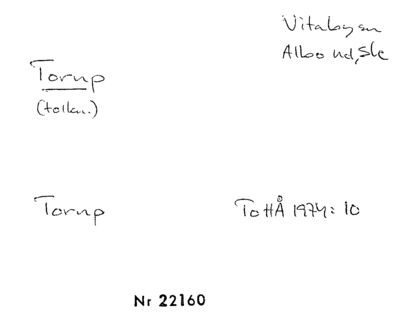 Vitaby sn
Albo hd, Sk
Torup
(tolkn.)
Torup
ToHÅ 1974: 10
Nr 22160